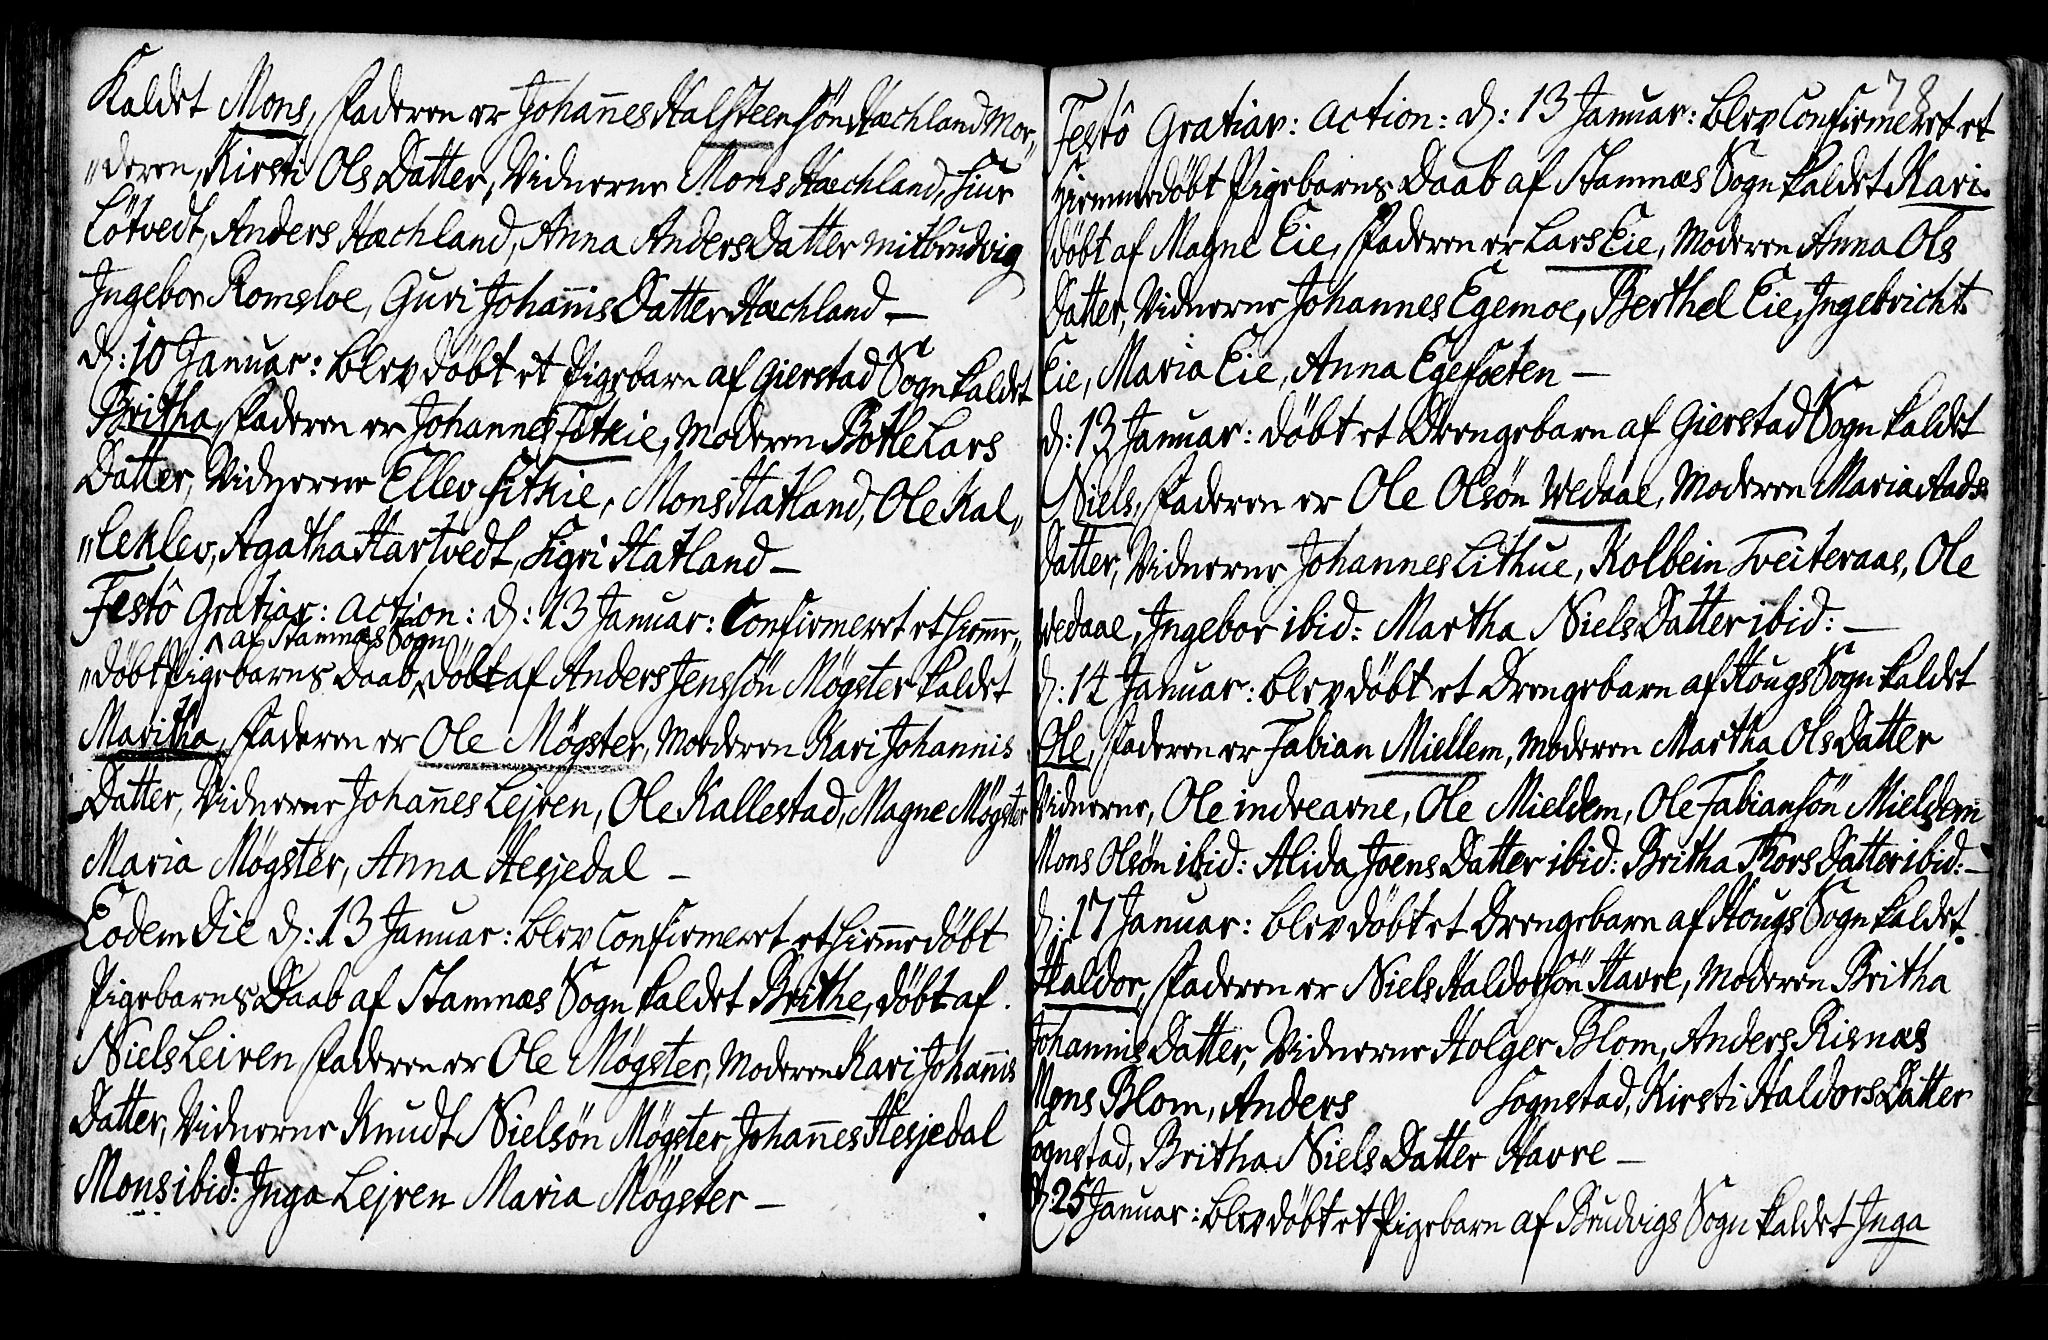 Kaldet Mons, Faderen er Johan̄es Halsteensön Hæchland Mo-
„deren, Kirsti Ols Datter, Vidnerne Mons Hæchland, Siur
Lötvedt, Anders Hæchland, Anna Anders Datter Mitbrudvig
Ingebor Romsloe, Guri Johan̄is Datter Hæchland —
d: 10 Januar: blev döbt et Pigebarn af Gierstad Sogn kaldet
Britha, Faderen er Johannes Fitkie, Moderen Bothe Lars
Datter, Vidnerne Ellev Fitkie, Mons Hatland, Ole Kal„
„leklev, Agatha Hartvedt, Sigri Hatland —
Festô Gratiar: Action: d: 13 Januar: Confirmeret et Hiem̄e„
af Stamnæs Sogn
„döbt Pigebarns Daab, döbt af Anders Jenssön Mögster kaldet
Maritha, Faderen er Ole Mögster, Moderen Kari Johannis
Datter, Vidnerne Johan̄es Lejren, Ole Kallestad, Magne Mögster
Maria Mögster, Anna Hesjedal —
Eodem Die d: 13 Januar: blev Confirmeret et Hiem̄edöbt
Pigebarns Daab af Stamnæs Sogn kaldet Brithe, döbt af
Niels Leiren, Faderen er Ole Mögster, Moderen Kari Johan̄is
Datter, Vidnerne Knudt Nielsön Mögster, Johan̄es Hesjedal
Mons ibid: Inga Lejren Maria Mögster —
78
Festô Gratiar: Action: d: 13 Januar: blev Confirmeret et
Hiemmedöbt Pigebarns Daab af Stamnæs Sogn kaldet Kari
döbt af Magne Eie, Faderen er Lars Eie, Moderen Anna Ols
Datter, Vidnerne Johannes Egemoe, Berthel Eie, Ingebricht
Eie, Maria Eie, Anna Egefoeten —
d: 13 Januar: döbt et Drengebarn af Gierstad Sogn kaldet
Niels, Faderen er Ole Olsön Wedaae, Moderen Maria Aads
Datter, Vidnerne Johannes Lithue, Kolbein Tveiteraas, Ole
Wedaae, Ingebor ibid: Martha Niels Datter ibid: —
d: 14 Januar: blev döbt et Drengebarn af Hougs Sogn kaldet
Ole, Faderen er Fabian Miellem, Moderen Martha Ols Datter
Vidnerne, Ole indrearne, Ole Mieldem, Ole Fabiansön Mieldem
Mons Olsön ibid: Alida Joens Datter ibid: Britha Thors Datter ibid: —
d: 17 Januar: blev döbt et Drengebarn af Hougs Sogn kaldet
Haldor, Faderen er Niels Haldorsön Havre, Moderen Britha
Johannis Datter, Vidnerne Holger Blom, Anders Risnæs
Mons Blom, Anders Sognstad, Kirsti Haldors Datter
Sognstad, Britha Niels Datter Havre —
d: 25 Januar: blev döbt et Pigebarn af Brudvigs Sogn kaldet Inga